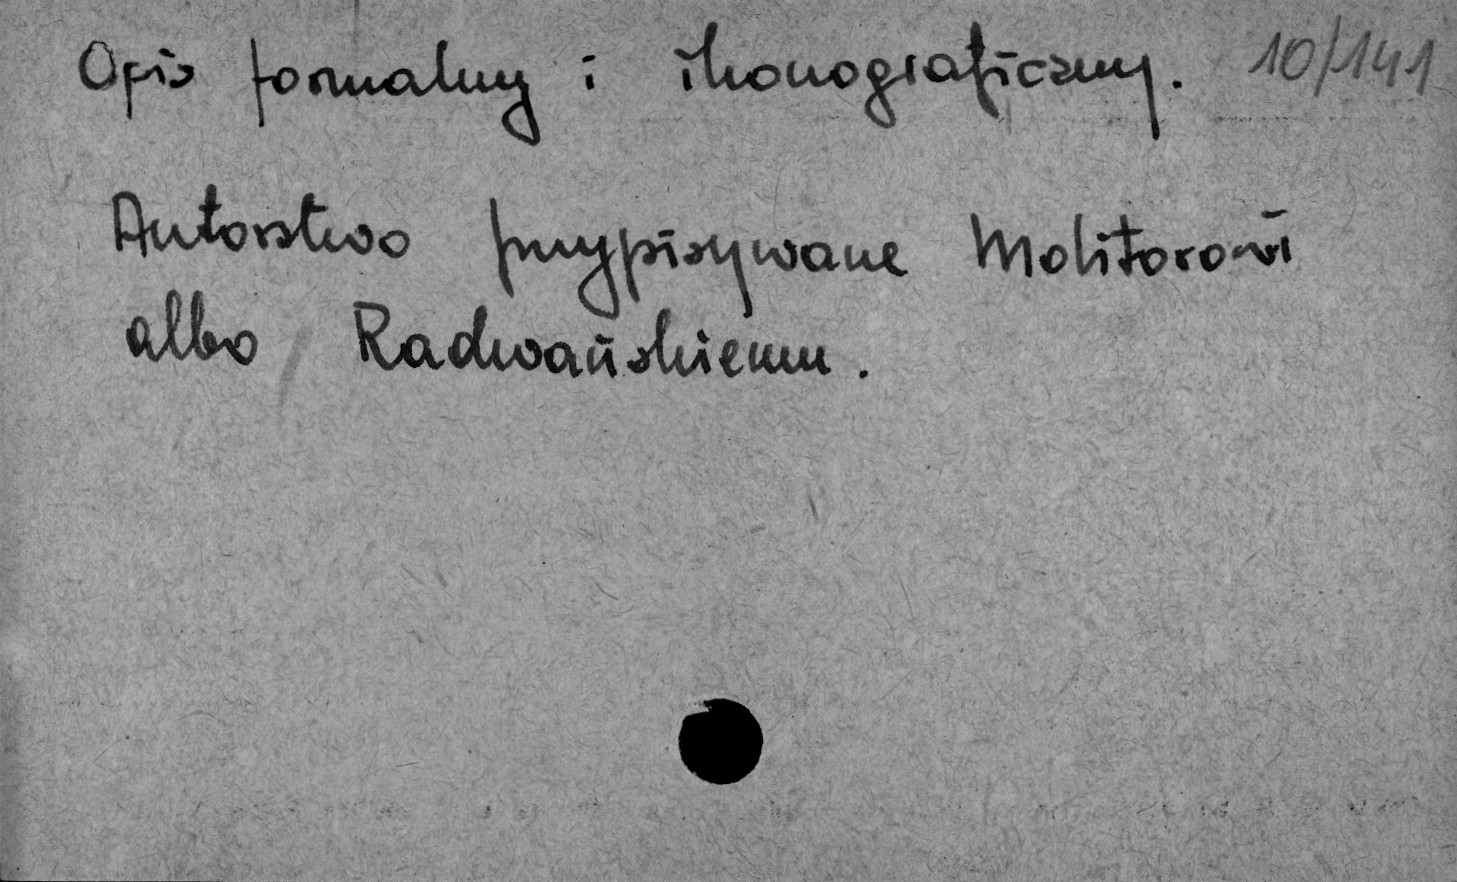 Opis formalny i ikonograficzny. 10/141
Autorstwo przypisywane Molitorowi
albo Radwańskiemu.